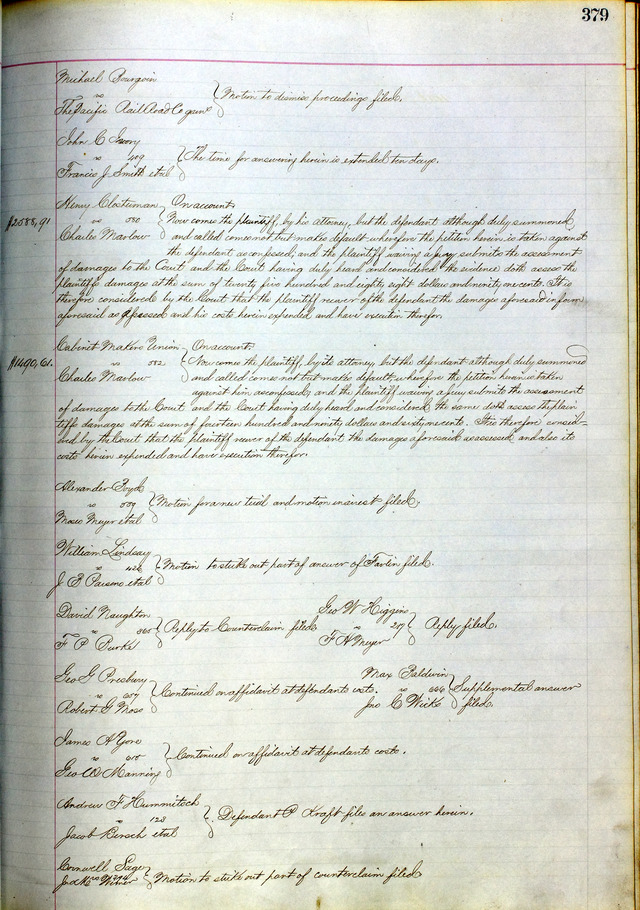 379
Michael Bourgoin
vs
The Pacific Rail Road Co garns
Motion to dismiss proceedings filed.
John C Ivory
vs 419
Francis J Smith etal
The time for answering herein is extended ten days.
$2588,91
Henry Closterman
vs 530
Charles Marlow
On account.
Now comes the plaintiff, by his attorney, but the defendant although duly summoned
and called comes not but makes default, wherefore the petition herein is taken against
the defendant as confessed; and the plaintiff waiving a jury submits the assessment
of damages to the Court and the Court having duly heard and considered the evidence doth assess the
plaintiffs damages at the sum of twenty five hundred and eighty eight dollars and ninety one cents. It is
therefore considered by the Court that the plaintiff recover of the defendant the damages aforesaid in form
aforesaid as assessed and his costs herein expended and have execution therefor.
$1490,61.
Cabinet Makers Union
vs 532
Charles Marlow
On account.
Now comes the plaintiff, by its attorney, but the defendant although duly summoned
and called comes not but makes default, wherefore the petition herein is taken
against him as confessed, and the plaintiff waiving a jury submits the assessment
of damages to the Court and the Court having duly heard and considered the same doth assess the plain
tiffs damages at the sum of fourteen hundred and ninety dollars and sixty one cents. It is therefore consid-
ered by the Court that the plaintiff recover of the defendant the damages aforesaid as assessed and also its
costs herein expended and have execution therefor.
Alexander
vs 559
Moses Meyer etal
Motion for a new trial and motion in arrest filed.
William Lindsay
vs 426
J E Parsons etal
Motion to strike out part of answer of filed.
David Naughton
vs
F P Burke
Reply to Counterclaim filed.
Geo W Higgins
vs 217
F H Meyer
Reply filed.
Geo G Presbury
vs 607
Robert G Moss
Continued on affidavit at defendants costs.
Max Baldwin
vs 646
Jno C Wicks
Supplemental answer
filed.
James A Yore
vs 610
Geo W Manning
Continued on affidavit at defendants costs.
Andrew F Hummitsch
vs 128
Jacob Birsch etal
Defendant P Kraft files an answer herein.
Cornwell Sage
vs
Motion to strike out part of counterclaim filed